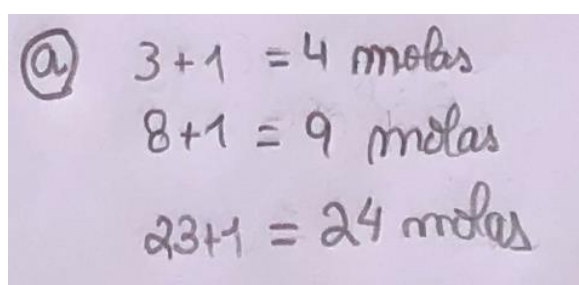 a 3+1 = 4 molas
8+1 = 9 molas
23+1 = 24 molas